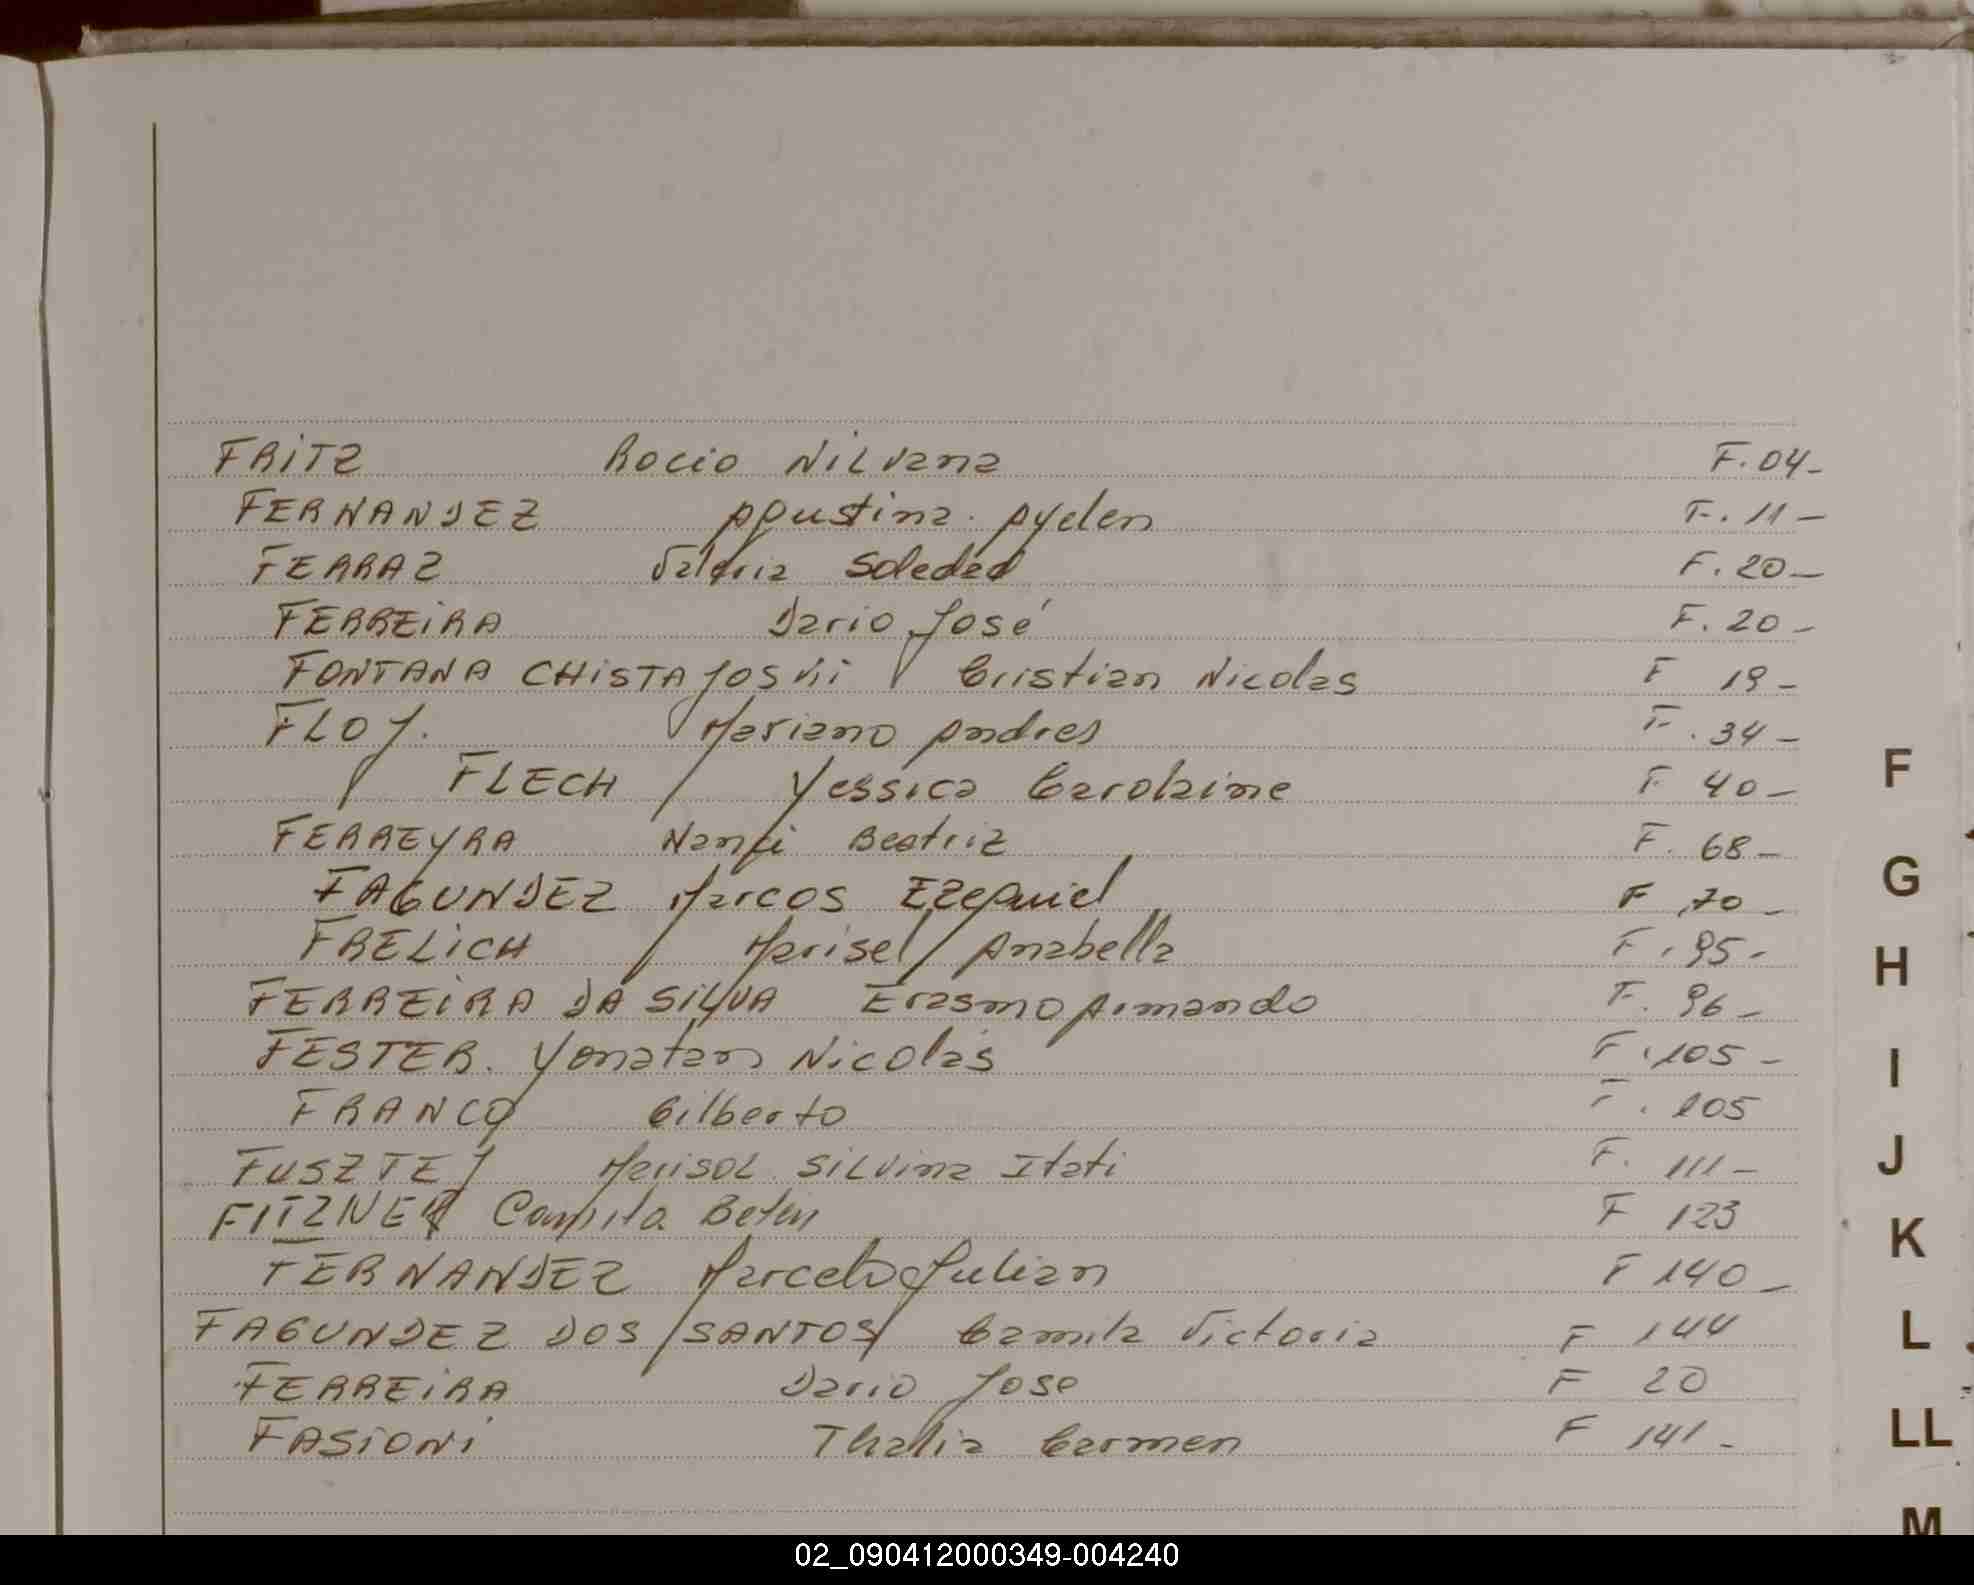 FRITZ Rocio Nilvana F.04-
FERNANDEZ Agustina. Ayelen F.11-
FERRAZ Valeria Soledad F.20-
FERREIRA Dario José F.20-
FONTANA CHISTAJOSKI Cristian Nicolas F 19-
FLOJ. Mariano Andres F.34-
FLECH Yessica Carolaine F 40-
FERREYRA Beatriz F.68-
FAGUNDEZ Marcos Ezequiel F.70-
FRELICH Marisel Anabella F.95-
FERREIRA DA SILVA Erasmo Armando F.96-
FESTER. Yonatan Nicolas F.105-
FRANCO Gilberto F.105
FUSZTEJ Marisol Silvina Itati F.111-
FITZNER Camila Belen F 123
FERNANDEZ Marcelo Julian F 140-
FAGUNDEZ DOS SANTOS Camila Victoria F 144
FERREIRA Dario Jose F 20
FASIONI Thalia Carmen F 141-
F
G
H
I
J
K
L
LL
M
02_090412000349-004240